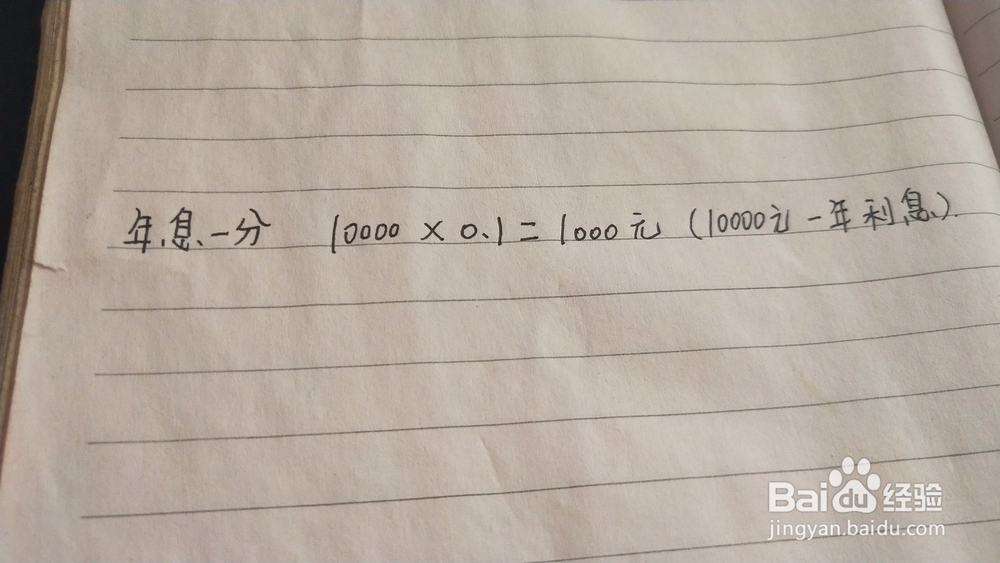 年息一分 10000 × 0.1 = 1000元 (10000元一年利息).
Baidu经验
jingyan.baidu.com